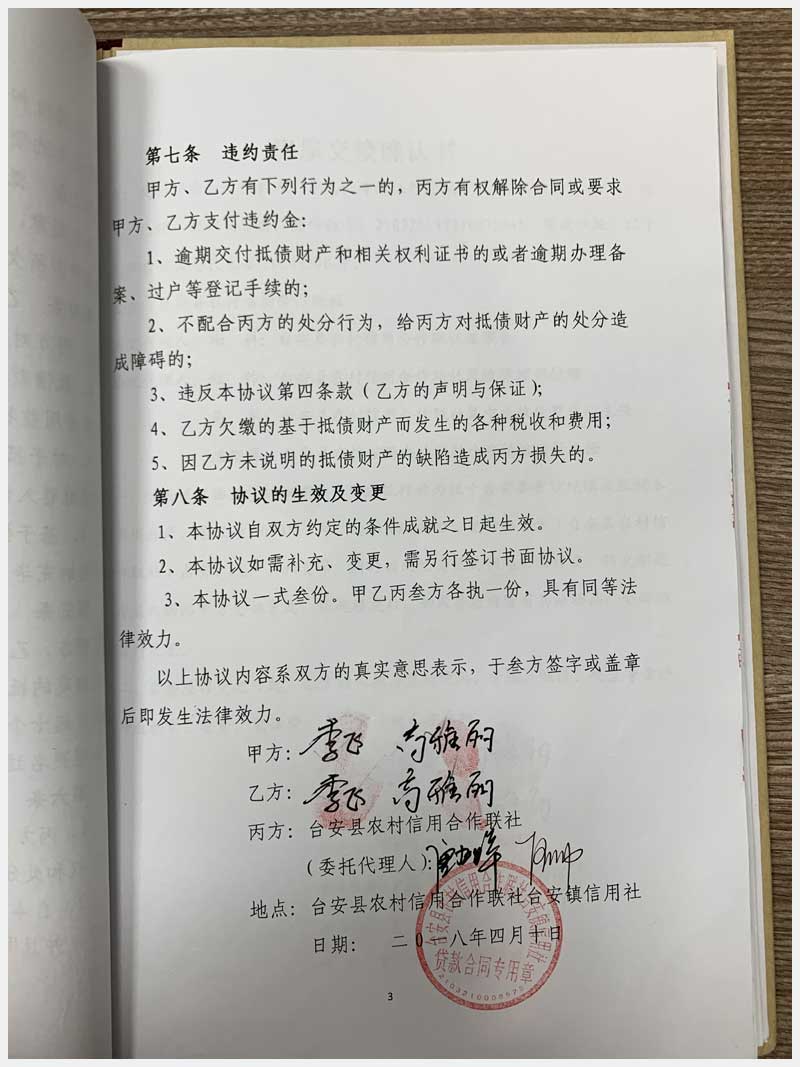 第七条 违约责任
甲方、乙方有下列行为之一的，丙方有权解除合同或要求
甲方、乙方支付违约金：
1、逾期交付抵债财产和相关权利证书的或者逾期办理备
案、过户等登记手续的；
2、不配合丙方的处分行为，给丙方对抵债财产的处分造
成障碍的；
3、违反本协议第四条款（乙方的声明与保证）；
4、乙方欠缴的基于抵债财产而发生的各种税收和费用；
5、因乙方未说明的抵债财产的缺陷造成丙方损失的。
第八条 协议的生效及变更
1、本协议自双方约定的条件成就之日起生效。
2、本协议如需补充、变更，需另行签订书面协议。
3、本协议一式叁份。甲乙丙叁方各执一份，具有同等法
律效力。
以上协议内容系双方的真实意思表示，于叁方签字或盖章
后即发生法律效力。
甲方：李飞 高雅丽
乙方：李飞 高雅丽
丙方：台安县农村信用合作联社
（委托代理人）：
地点：台安县农村信用合作联社台安镇信用社
日期： 二〇一八年四月十日
台安县农村信用合作联社台安镇信用社
贷款合同专用章
3